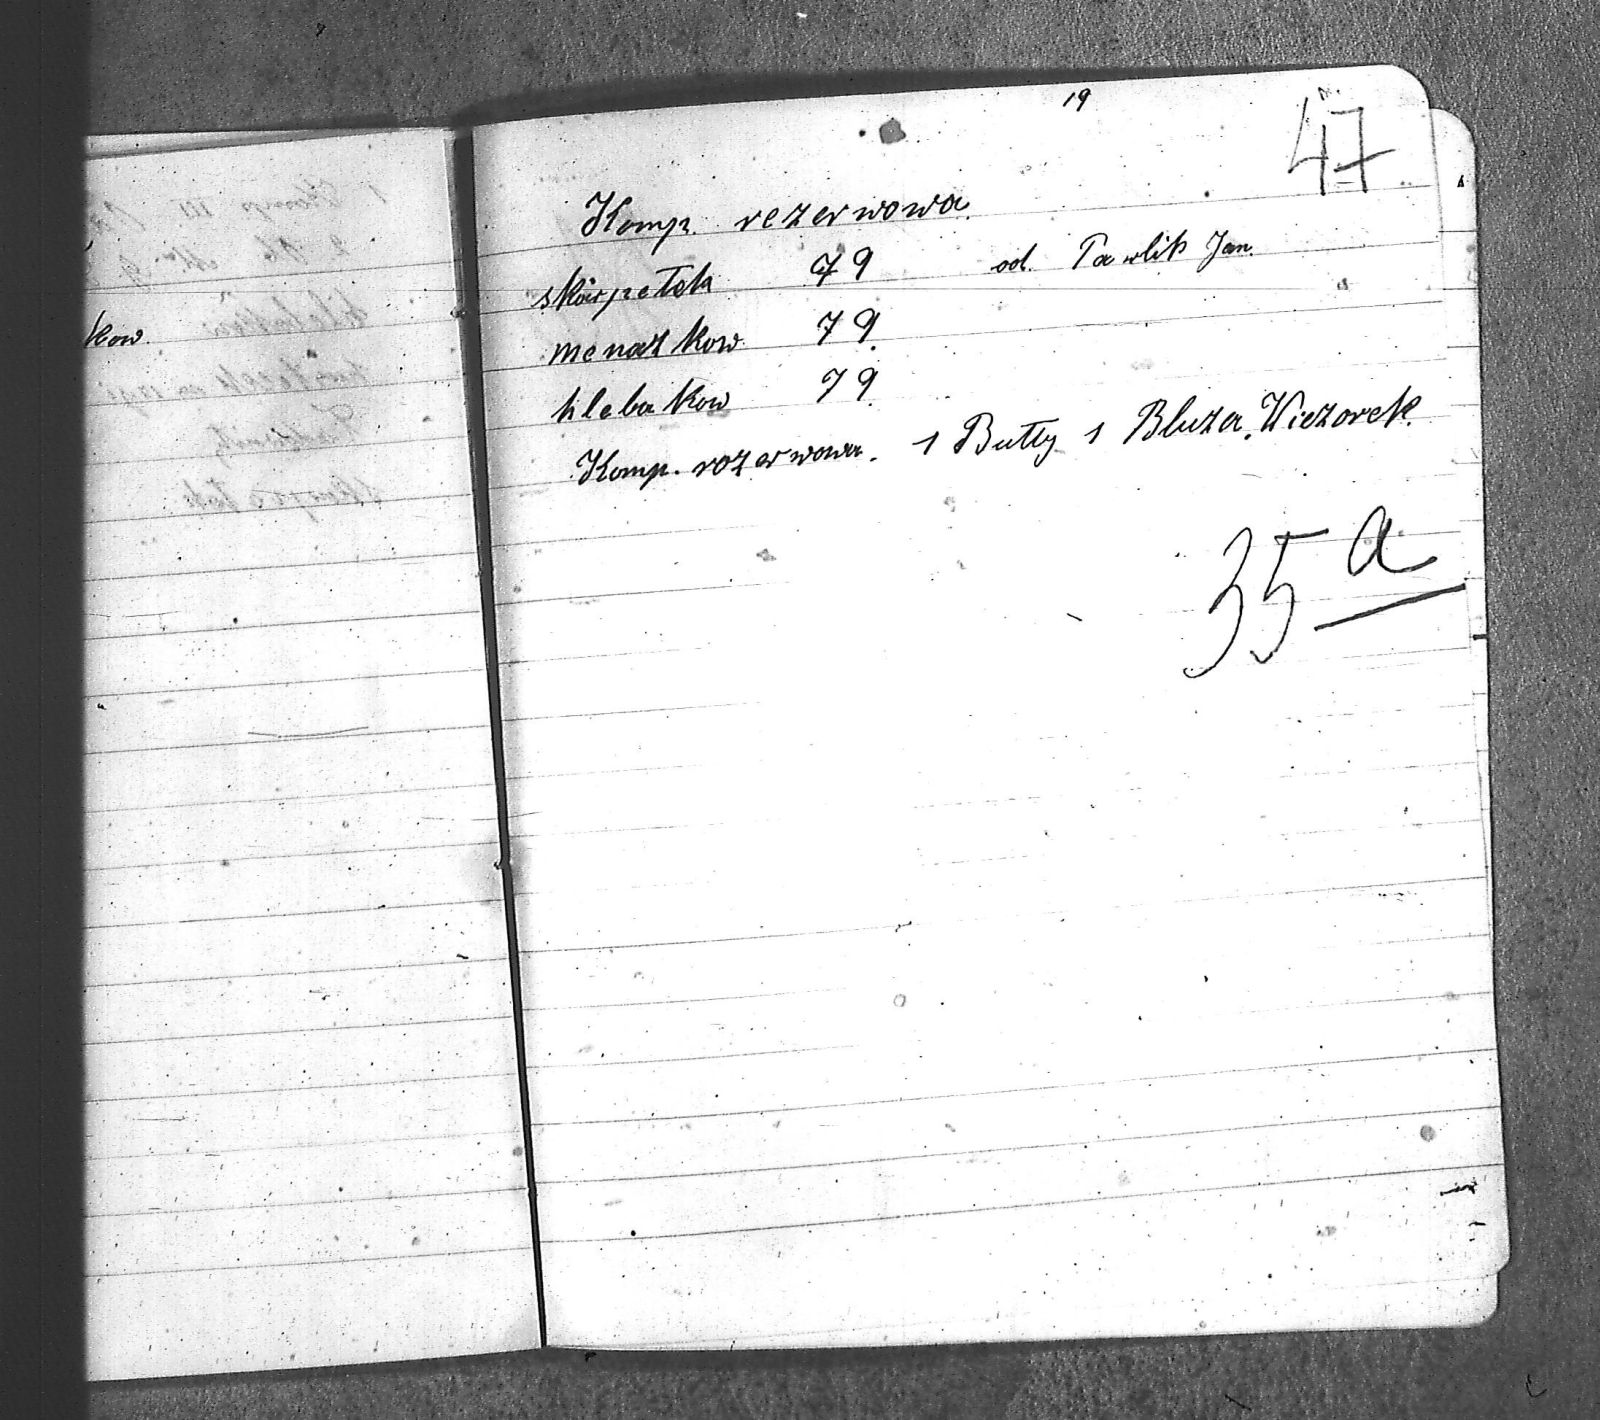 19
47
Komp. rezerwowa.
skarpetek 79 od. Pawlik Jan.
menażkow 79.
hlebakow 79.
Komp. rezerwowa. 1 Butty 1 Bluza. Wiezorek.
35 a
kow.